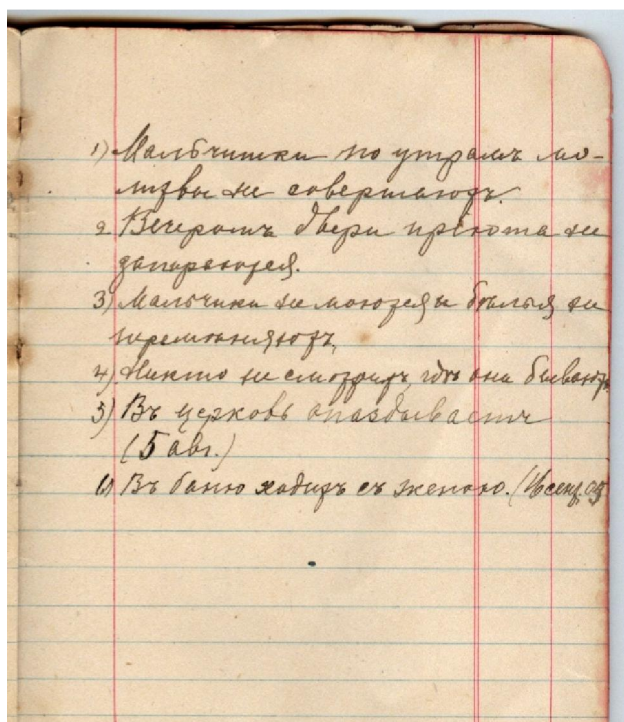 1) Мальчишки по утрамъ мо-
литвы не совершаютъ.
2 Вечеромъ двери пріюта не
запираются.
3) Мальчики не моются и бѣлья не
перемѣняютъ.
4) Никто не смотритъ, гдѣ они бываютъ.
5) Въ церковь опаздываетъ
(5 авг.)
6) Въ баню ходитъ съ женою.